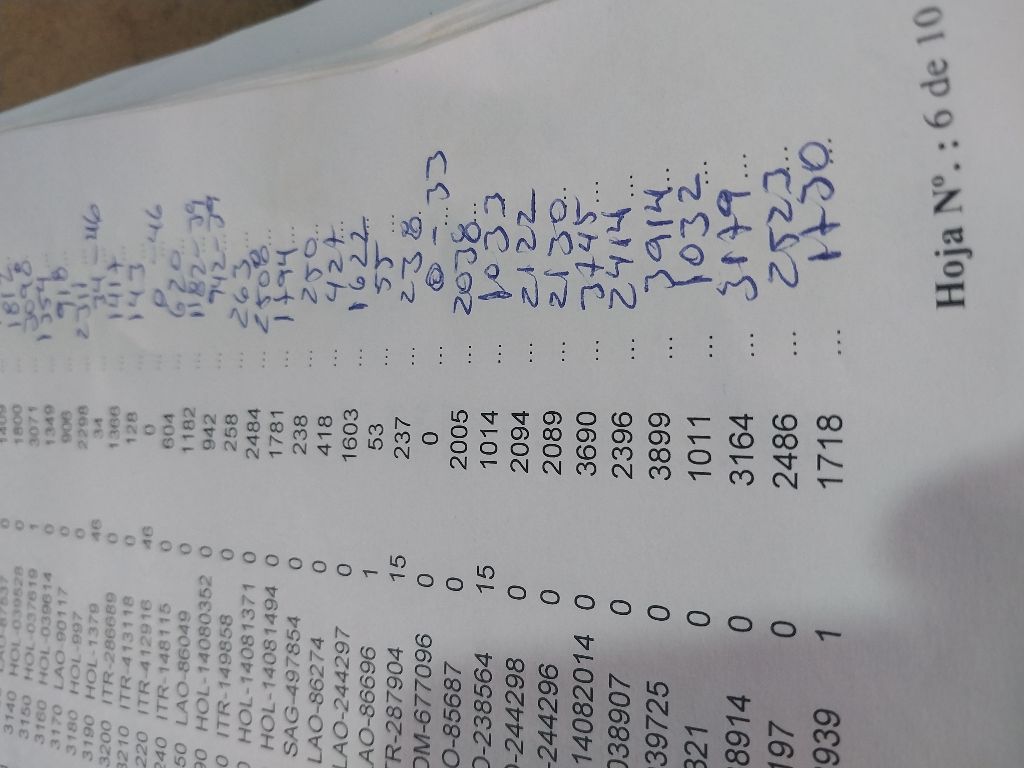 3140 HOL-039528 0 1800 ... 1812
3150 HOL-037619 1 3071 ... 3098
3160 HOL-039614 0 1349 ... 1354
3170 LAO-90117 0 906 ... 918
3180 HOL-997 0 2298 ... 2311
3190 HOL-1379 46 34 ... 34-46
3200 ITR-286689 0 1366 ... 1417
3210 ITR-413118 46 128 ... 143
220 ITR-412916 0 ... 0-46
240 ITR-148115 0 604 ... 620
50 LAO-86049 0 1182 ... 1182-39
90 HOL-14080352 0 942 ... 942-39
0 ITR-149858 0 258 ... 263
HOL-14081371 0 2484 ... 2508
HOL-14081494 0 1781 ... 1794
SAG-497854 0 238 ... 250
LAO-86274 0 418 ... 427
LAO-244297 0 1603 ... 1622
AO-86696 1 53 ... 55
TR-287904 15 237 ... 238
OM-677096 0 0 ... 0-33
O-85687 0 2005 ... 2038
O-238564 15 1014 ... 1033
-244298 0 2094 ... 2122
-244296 0 2089 ... 2130
14082014 0 3690 ... 3745
038907 0 2396 ... 2414
39725 0 3899 ... 3914
321 0 1011 ... 1032
8914 0 3164 ... 3179
197 0 2486 ... 2523
939 1 1718 ... 1730
Hoja Nº. : 6 de 10